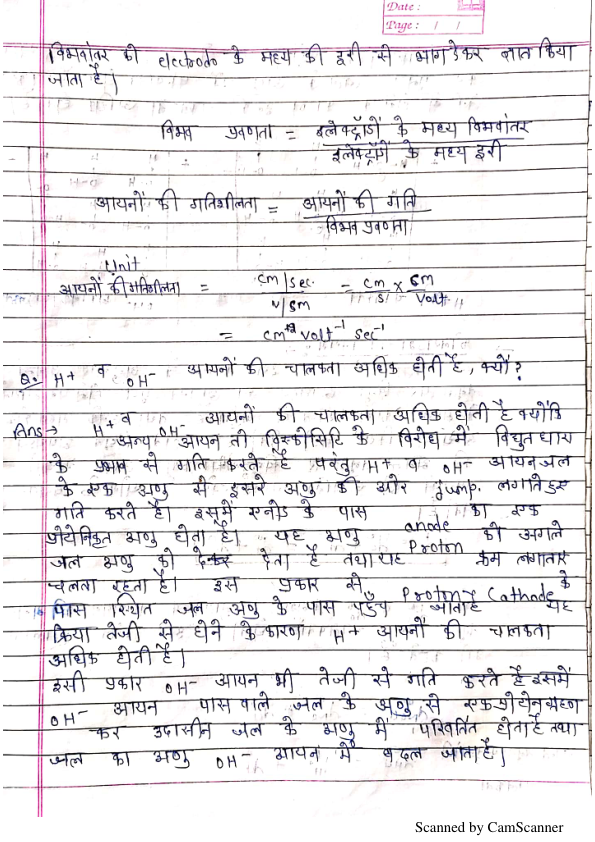 Date :
Page :
विभवांतर को electrodo के मध्य की दूरी से भाग देकर ज्ञात किया
जाता है।
विभव प्रवणता = इलेक्ट्रॉडों के मध्य विभवांतर
इलेक्ट्रॉडों के मध्य दूरी
आयनों की गतिशीलता = आयनों की गति
विभव प्रवणता
Unit
आयनों की गतिशीलता = cm/sec. = cm x cm
v/cm s volt
= cm+2 volt-1 sec-1
Q. H+ व OH- आयनों की चालकता अधिक होती है, क्यों?
Ans → H+ व OH- आयनों की चालकता अधिक होती है क्योंकि
अन्य आयन तो विस्कोसिटि के विरोध में विद्युत धारा
के प्रभाव से गति करते है परंतु H+ व OH- आयन जल
के एक अणु से दूसरे अणु की ओर jump. लगाते हुए
गति करते है। इसमें एनोड के पास का एक
प्रोयेनिकृत अणु होता है। यह अणु anode को अगले
जल अणु को देकर देता है तथा यह Proton क्रम लगातार
चलता रहता है। इस प्रकार से Proton Cathode के
पास स्थित जल अणु के पास पहुँच जाता है यह
क्रिया तेजी से होने के कारण H+ आयनों की चालकता
अधिक होती है।
इसी प्रकार OH- आयन भी तेजी से गति करते है इसमें
OH- आयन पास वाले जल के अणु से एक प्रोटोन ग्रहण
कर उदासीन जल के अणु में परिवर्तित होता है तथा
जल का अणु OH- आयन में बदल जाता है।
Scanned by CamScanner